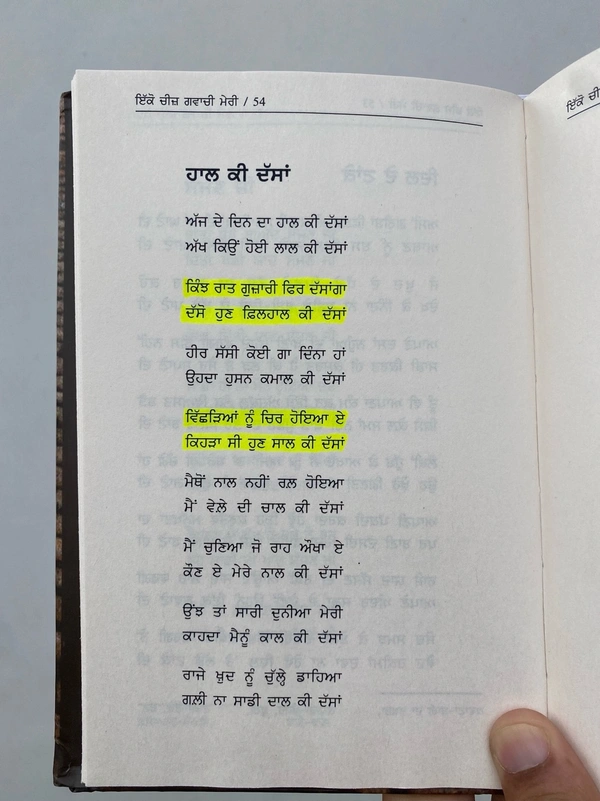 ਇੱਕੋ ਚੀਜ਼ ਗਵਾਚੀ ਮੇਰੀ / 54
ਹਾਲ ਕੀ ਦੱਸਾਂ
ਅੱਜ ਦੇ ਦਿਨ ਦਾ ਹਾਲ ਕੀ ਦੱਸਾਂ
ਅੱਖ ਕਿਉਂ ਹੋਈ ਲਾਲ ਕੀ ਦੱਸਾਂ
ਕਿੰਝ ਰਾਤ ਗੁਜ਼ਾਰੀ ਫਿਰ ਦੱਸਾਂਗਾ
ਦੱਸੋ ਹੁਣ ਫ਼ਿਲਹਾਲ ਕੀ ਦੱਸਾਂ
ਹੀਰ ਸੱਸੀ ਕੋਈ ਗਾ ਦਿੰਨਾ ਹਾਂ
ਉਹਦਾ ਹੁਸਨ ਕਮਾਲ ਕੀ ਦੱਸਾਂ
ਵਿੱਛੜਿਆਂ ਨੂੰ ਚਿਰ ਹੋਇਆ ਏ
ਕਿਹੜਾ ਸੀ ਹੁਣ ਸਾਲ ਕੀ ਦੱਸਾਂ
ਮੈਥੋਂ ਨਾਲ ਨਹੀਂ ਰਲ਼ ਹੋਇਆ
ਮੈਂ ਵੇਲ਼ੇ ਦੀ ਚਾਲ ਕੀ ਦੱਸਾਂ
ਮੈਂ ਚੁਣਿਆ ਜੋ ਰਾਹ ਔਖਾ ਏ
ਕੌਣ ਏ ਮੇਰੇ ਨਾਲ ਕੀ ਦੱਸਾਂ
ਉਂਝ ਤਾਂ ਸਾਰੀ ਦੁਨੀਆ ਮੇਰੀ
ਕਾਹਦਾ ਮੈਨੂੰ ਕਾਲ ਕੀ ਦੱਸਾਂ
ਰਾਜੇ ਖ਼ੁਦ ਨੂੰ ਚੁੱਲ੍ਹੇ ਡਾਹਿਆ
ਗਲ਼ੀ ਨਾ ਸਾਡੀ ਦਾਲ ਕੀ ਦੱਸਾਂ
ਇੱਕੋ ਚੀ